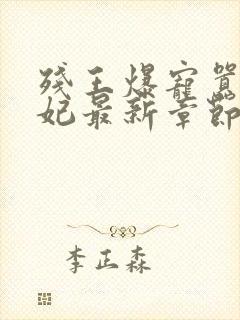 残王爆寵囂
妃最新章節
李正森